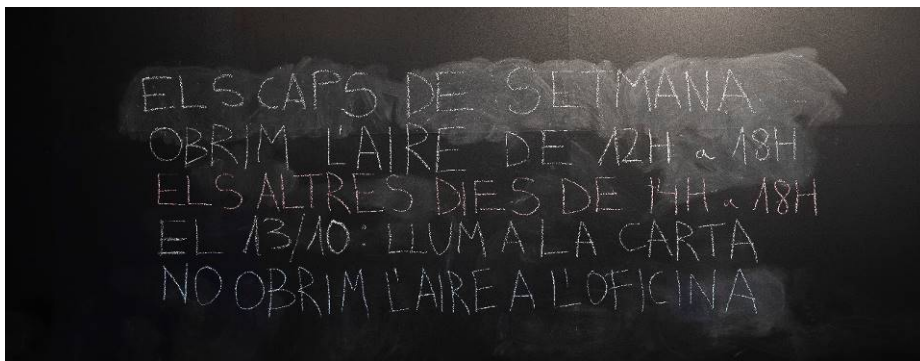 ELS CAPS DE SETMANA.
OBRIM L'AIRE DE 12H a 18H
ELS ALTRES DIES DE 14H a 18H
EL 13/10: LLUM A LA CARTA
NO OBRIM L'AIRE A L'OFICINA